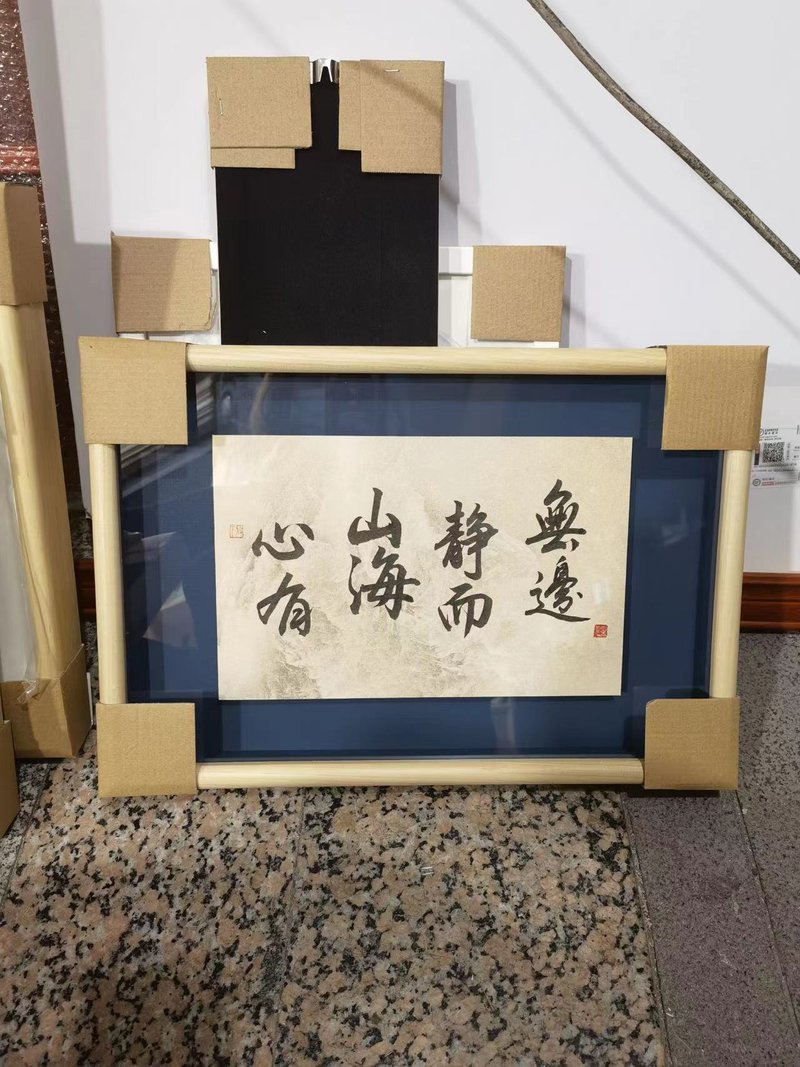 心有
山海
静而
無邊